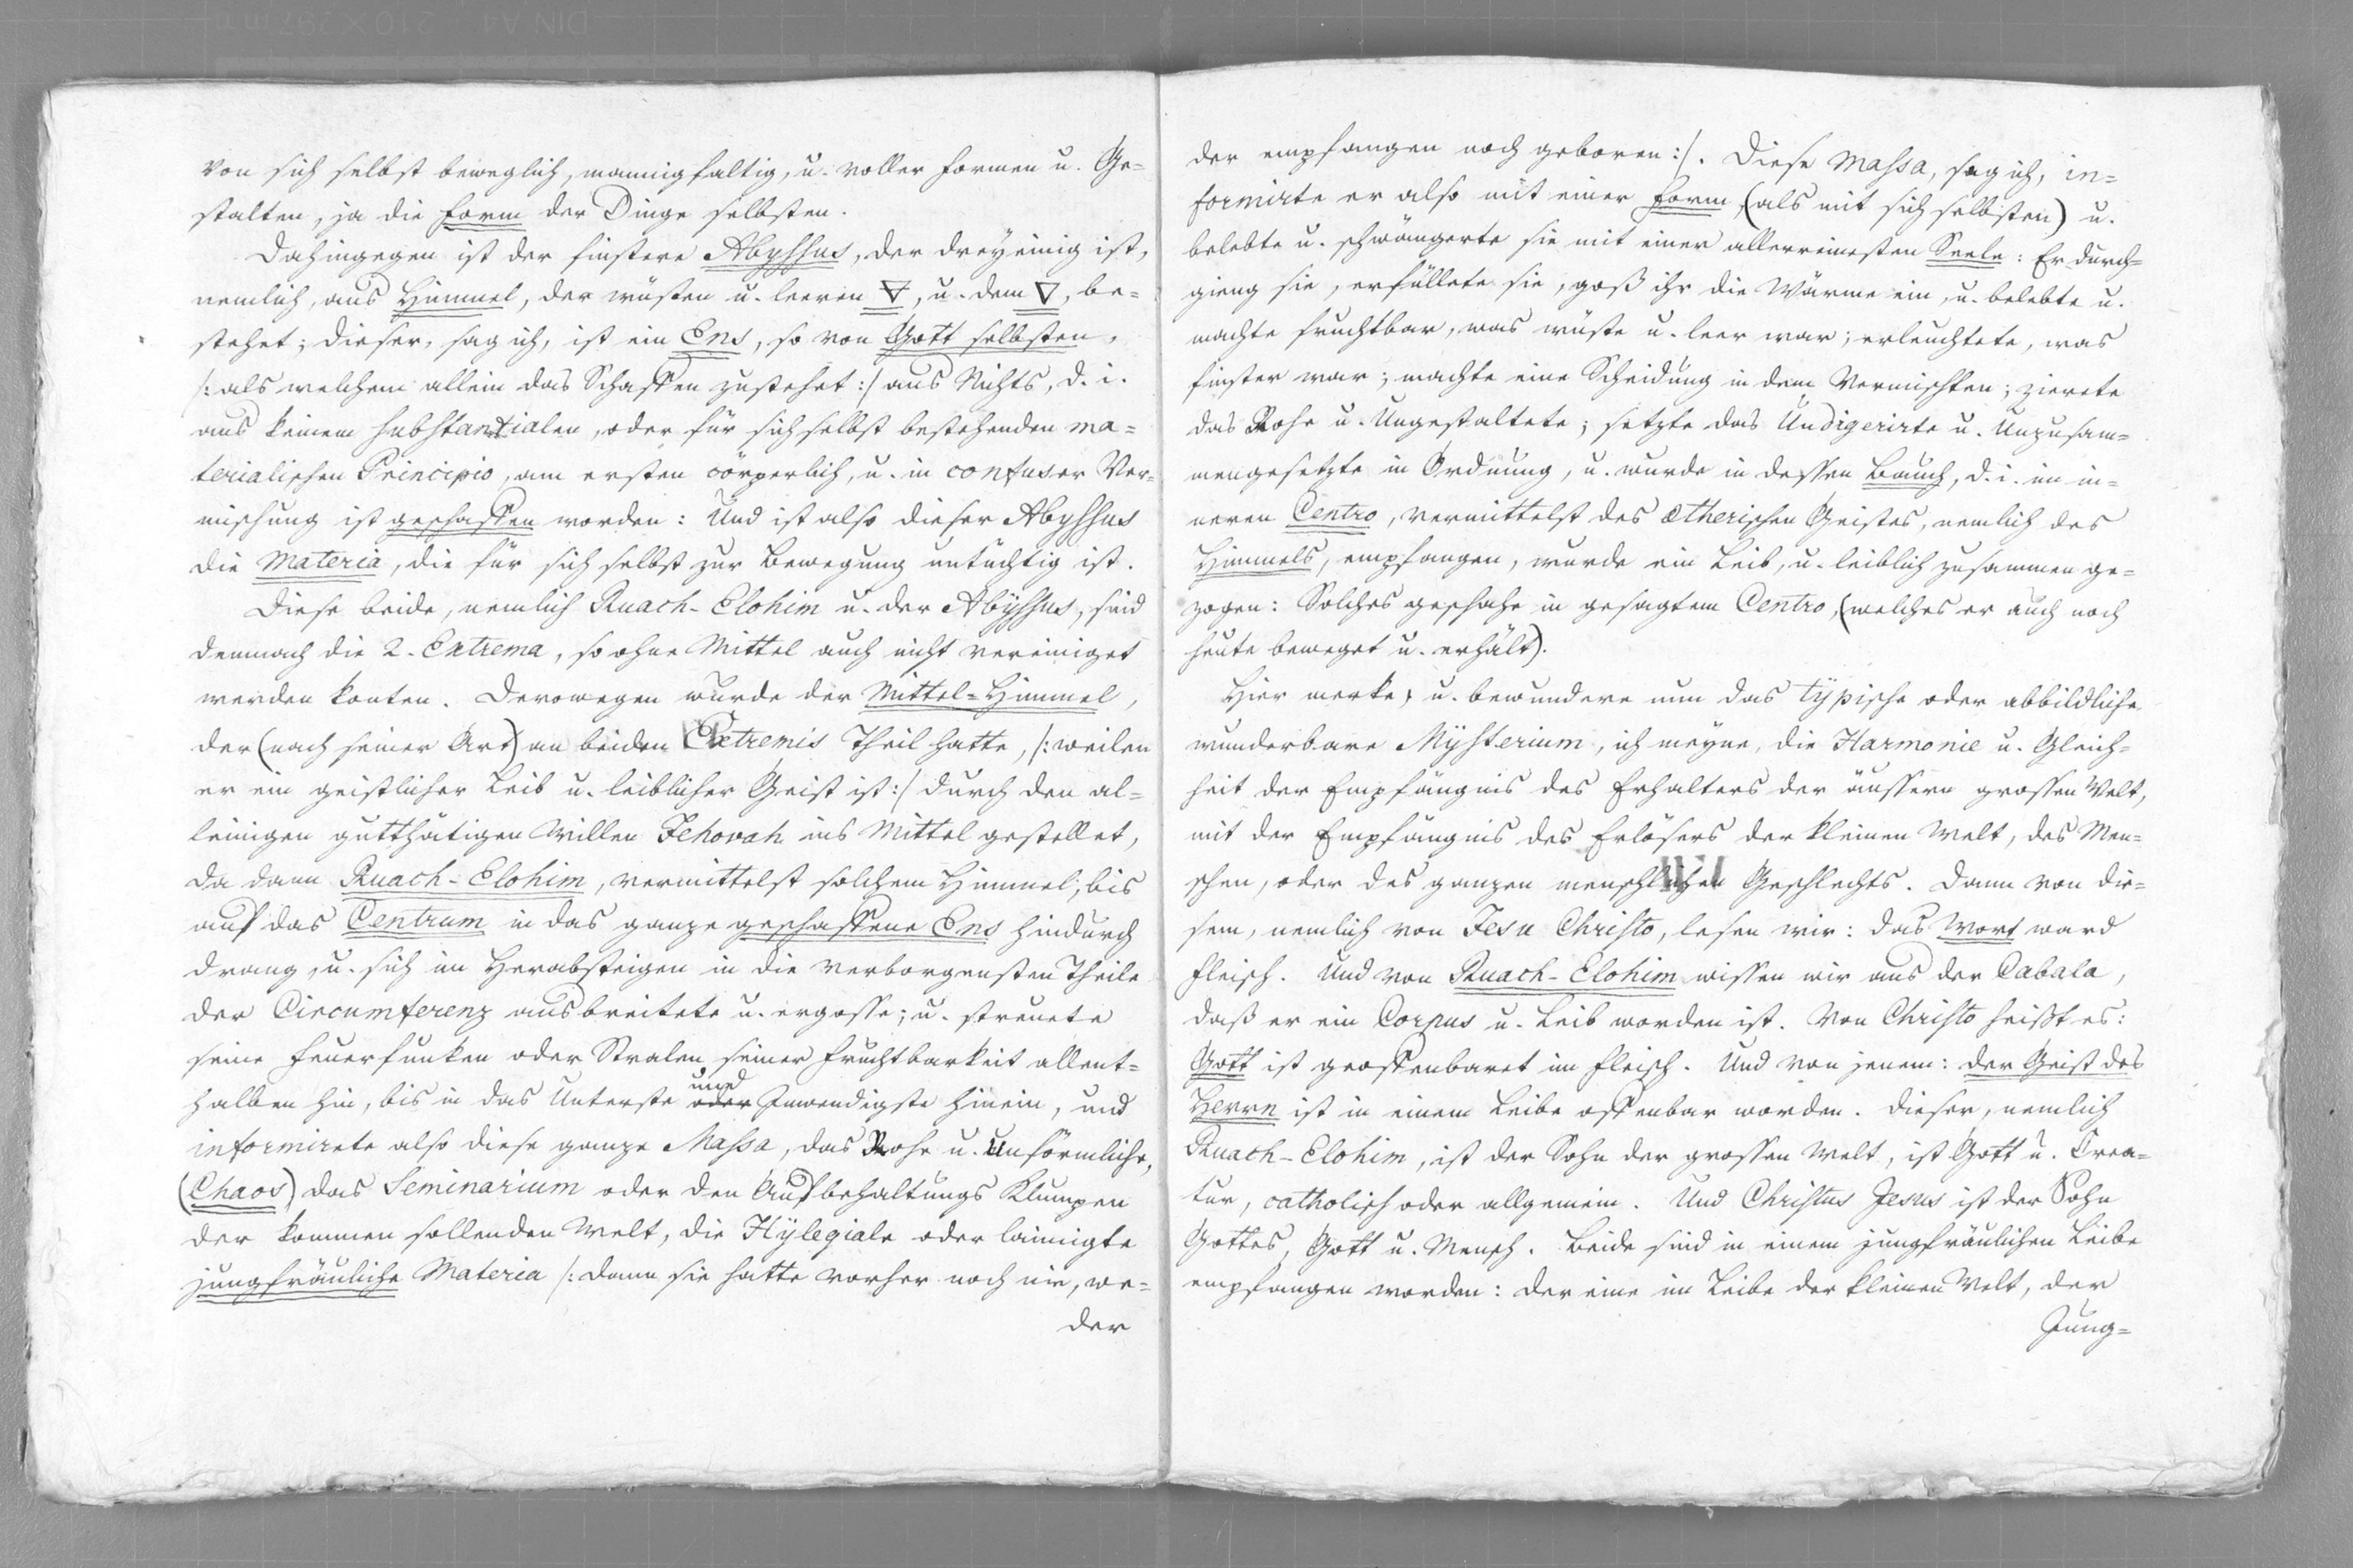 von sich selbst beweglich, mannigfaltig, u. voller Formen u. Ge=
stalten, ja die Form der Dinge selbsten.
Dahingegen ist der finstere Abyssus, der dreyeinig ist,
nemlich, aus Himmel, der wüsten u. leeren 🜃, u. dem 🜄, be=
stehet; dieser, sag ich, ist ein Ens, so von Gott selbsten,
/: als welchem allein das Schaffen zustehet :/ aus Nichts, d. i.
aus keinem substantialen, oder für sich selbst bestehenden ma=
terialischen Principio, am ersten cörperlich, u. in confuser Ver=
mischung ist geschaffen worden: Und ist also dieser Abyssus
die Materia, die für sich selbst zur Bewegung untüchtig ist.
Diese beide, nemlich Ruach-Elohim u. der Abÿssus, sind
demnach die 2. Extrema, so ohne Mittel auch nicht vereiniget
werden konten. Derowegen wurde der Mittel=Himmel,
der (nach seiner Art) an beiden Extremis Theil hatte, /: weilen
er ein geistlicher Leib u. leiblicher Geist ist :/ durch den al=
leinigen gutthätigen Willen Jehovah ins Mittel gestellet,
da dann Ruach-Elohim, vermittelst solchem Himmel, bis
auf das Centrum in das ganze geschaffene Ens hindurch
drang, u. sich im Herabsteigen in die verborgensten Theile
der Circumferenz ausbreitete u. ergosse; u. streuete
seine Feuerfunken oder Stralen seiner Fruchtbarkeit allent=
halben hin, bis in das Unterste oder und Inwendigste hinein, und
informirete also diese ganze Massa, das Rohe u. Unförmliche,
(Chaos) das Seminarium oder den Aufbehaltungs Klumpen
der kommen sollenden Welt, die Hÿlegiale oder laimigte
jungfräuliche Materia /: dann sie hatte vorher noch nie, we=
der
der empfangen noch geboren :/. Diese Massa, sag ich, in=
formirte er also mit einer Form, (als mit sich selbsten) u.
belebte u. schwängerte sie mit einer allerreinesten Seele: Er durch=
gieng sie, erfüllete sie, goß ihr die Wärme ein, u. belebte u.
machte fruchtbar, was wüste u. leer war; erleuchtete, was
finster war; machte eine Scheidung in dem Vermischten; zierete
das Rohe u. Ungestaltete; setzte das Undigerirte u. Unzusam=
mengesetzte in Ordnung, u. wurde in dessen Bauch, d. i. im in=
neren Centro, vermittelst des ætherischen Geistes, nemlich des
Himmels, empfangen, wurde ein Leib, u. leiblich zusammen ge=
zogen: Solches geschahe in gesagtem Centro, (welches er auch noch
heute beweget u. erhält).
Hier merke, u. bewundere nun das typische oder abbildliche
wunderbare Mÿsterium, ich meyne, die Harmonie u. Gleich=
heit der Empfängnis des Erhalters der äussern grossen Welt,
mit der Empfängnis des Erlösers der kleinen Welt, des Men=
schen, oder des ganzen menschlichen Geschlechts. Dann von die=
sem, nemlich von Jesu Christo, lesen wir: das Wort ward
Fleisch. Und von Ruach-Elohim wissen wir aus der Cabala,
daß er ein Corpus u. Leib worden ist. Von Christo heißt es:
Gott ist geoffenbaret im Fleisch. Und von jenem: der Geist des
Herrn ist in einem Leibe offenbar worden. Dieser, nemlich
Ruach-Elohim, ist der Sohn der grossen Welt, ist Gott u. Crea=
tur, catholisch oder allgemein. Und Christus Jesus ist der Sohn
Gottes, Gott u. Mensch. Beide sind in einem jungfräulichen Leibe
empfangen worden: der eine im Leibe der kleinen Welt, der
Jung=